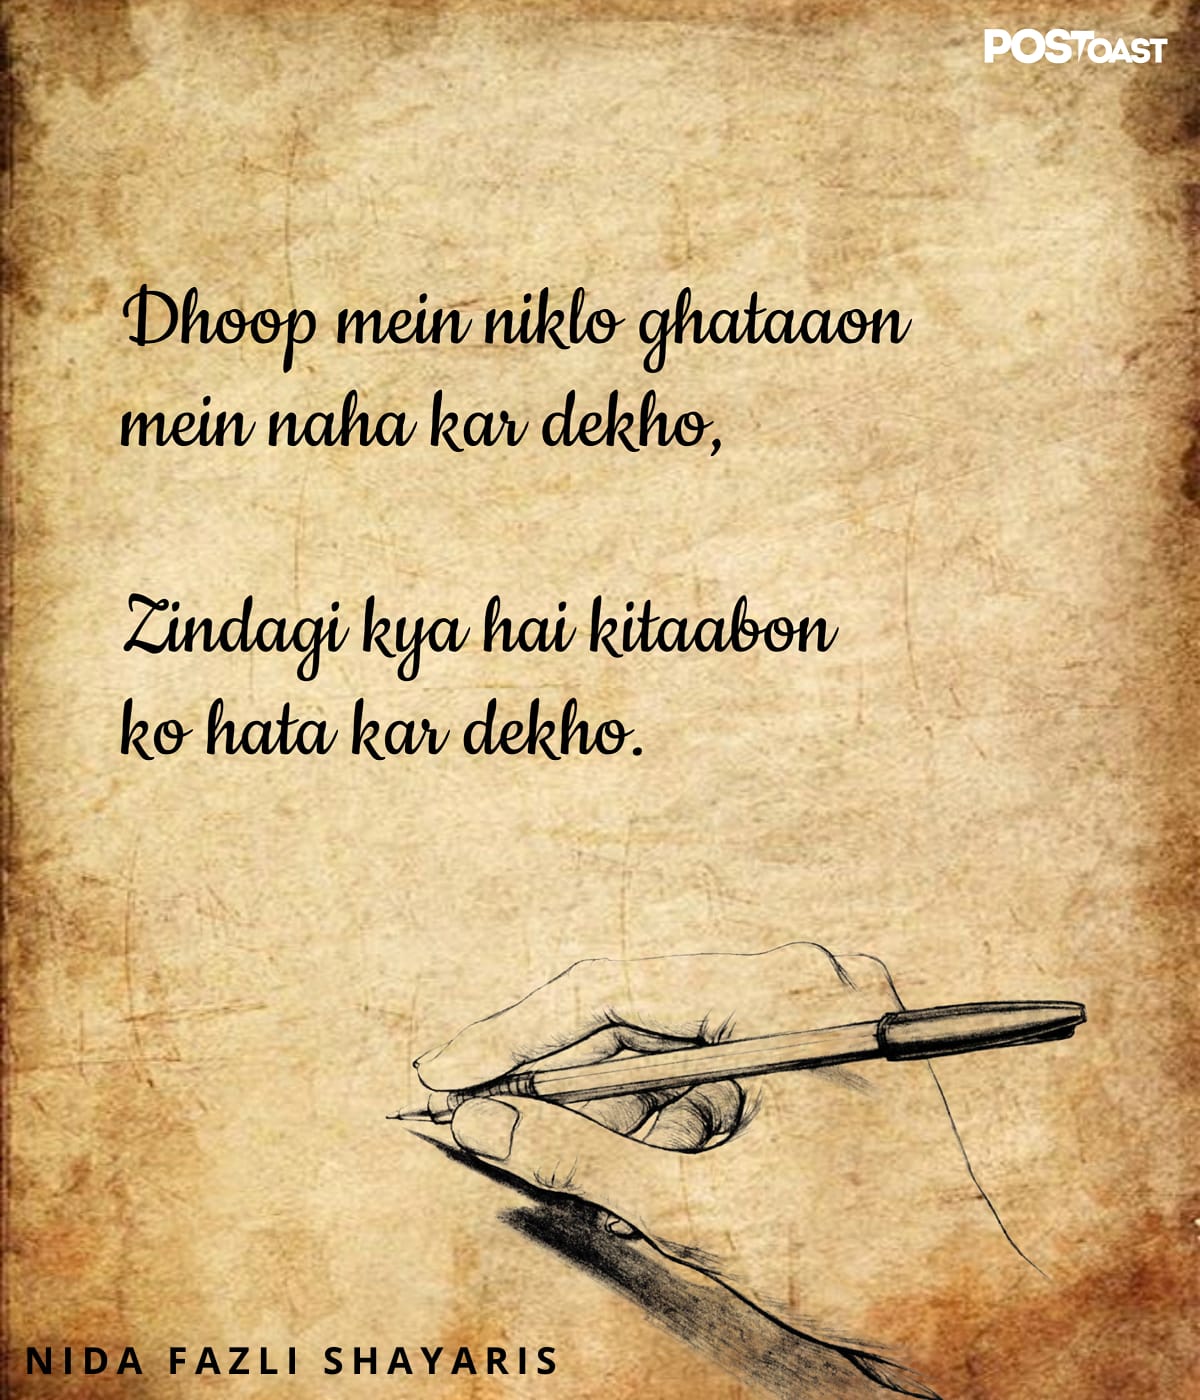 POSTOAST
Dhoop mein niklo ghataaon
mein naha kar dekho,
Zindagi kya hai kitaabon
ko hata kar dekho.
NIDA FAZLI SHAYARIS